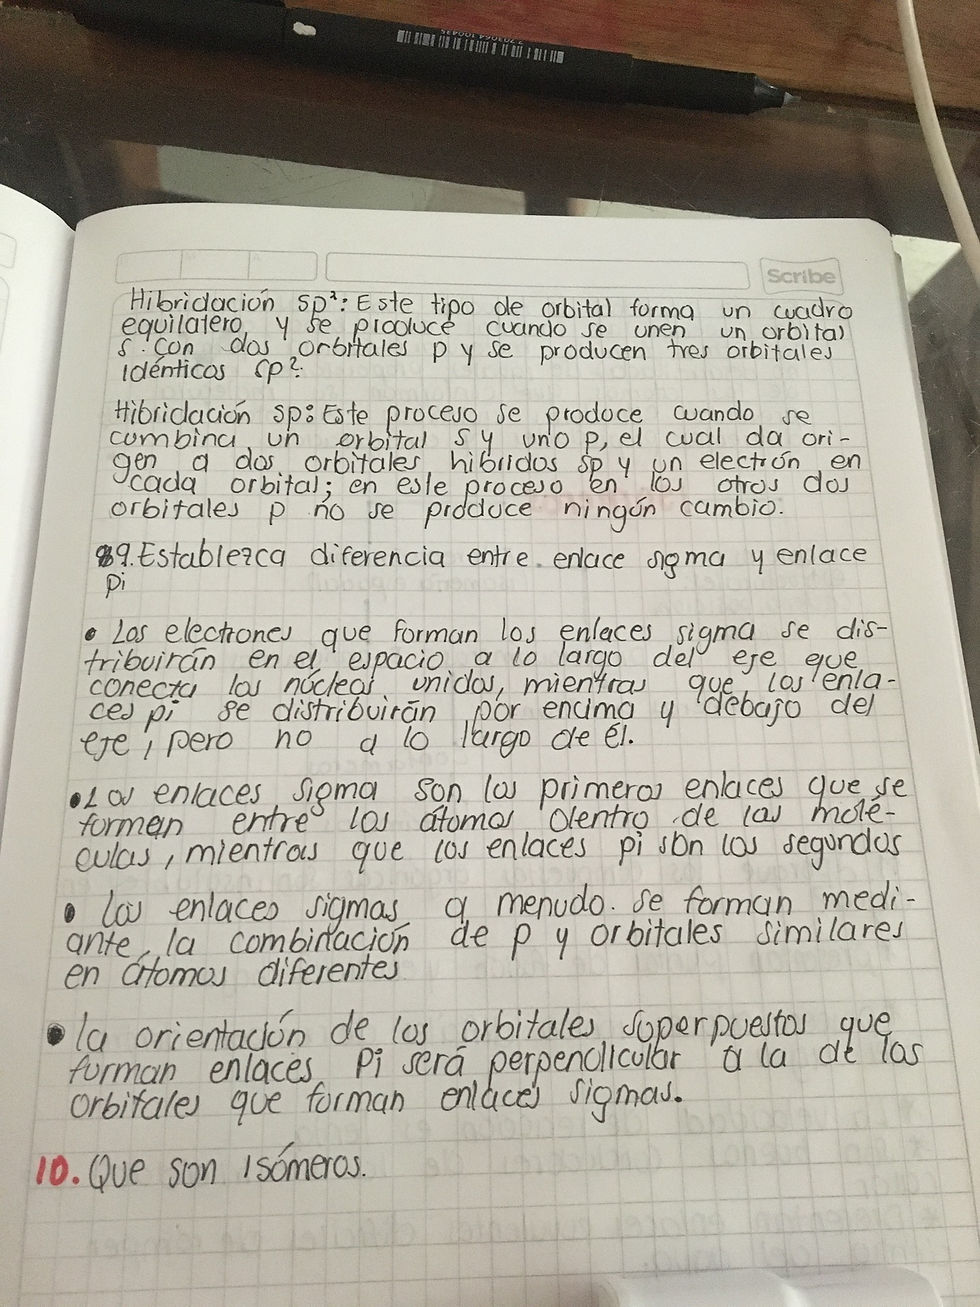 7 703064 100435
Scribe
Hibridación sp²: Este tipo de orbital forma un cuadro
equilatero, y se produce cuando se unen un orbital
s. con dos orbitales p y se producen tres orbitales
idénticos sp².
Hibridación sp: Este proceso se produce cuando se
combina un orbital s y uno p, el cual da ori-
gen a dos orbitales híbridos sp y un electrón en
cada orbital; en este proceso en los otros dos
orbitales p no se produce ningún cambio.
9. Establezca diferencia entre enlace sigma y enlace
pi
• Los electrones que forman los enlaces sigma se dis-
tribuirán en el espacio a lo largo del eje que
conecta los núcleos unidos, mientras que los enla-
ces pi se distribuirán por encima y debajo del
eje, pero no a lo largo de él.
• Los enlaces sigma son los primeros enlaces que se
forman entre los átomos dentro de las molé-
culas, mientras que los enlaces pi son los segundos
• los enlaces sigmas a menudo. se forman medi-
ante la combinación de p y orbitales similares
en átomos diferentes
• la orientación de los orbitales superpuestos que
forman enlaces Pi será perpendicular a la de los
orbitales que forman enlaces sigmas.
10. Que son isómeros.